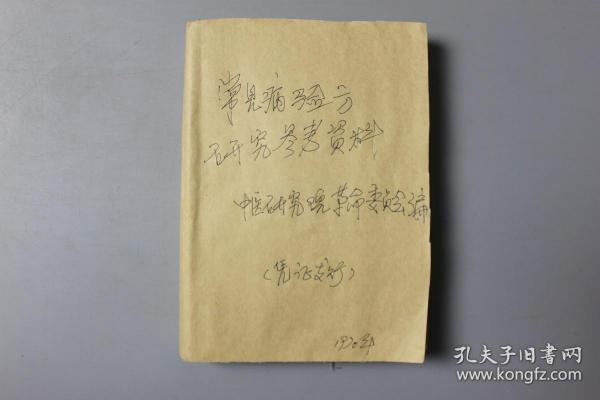 常见病验方
研究参考资料
中医研究院革命委员会编
(凭证发行)
1970年
孔夫子旧书网
www.kongfz.com